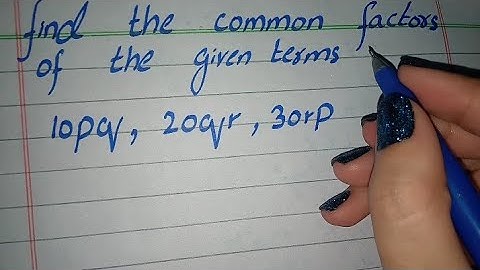 find the common factors
of the given terms
10pq, 20qr, 30rp